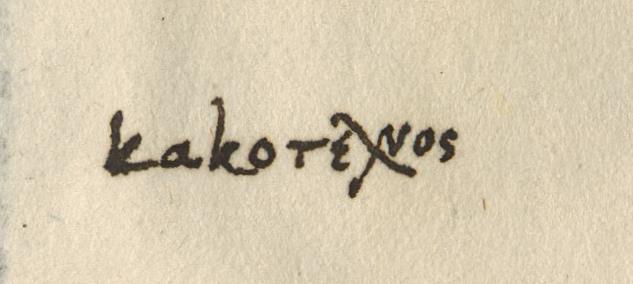 κακοτεχνος